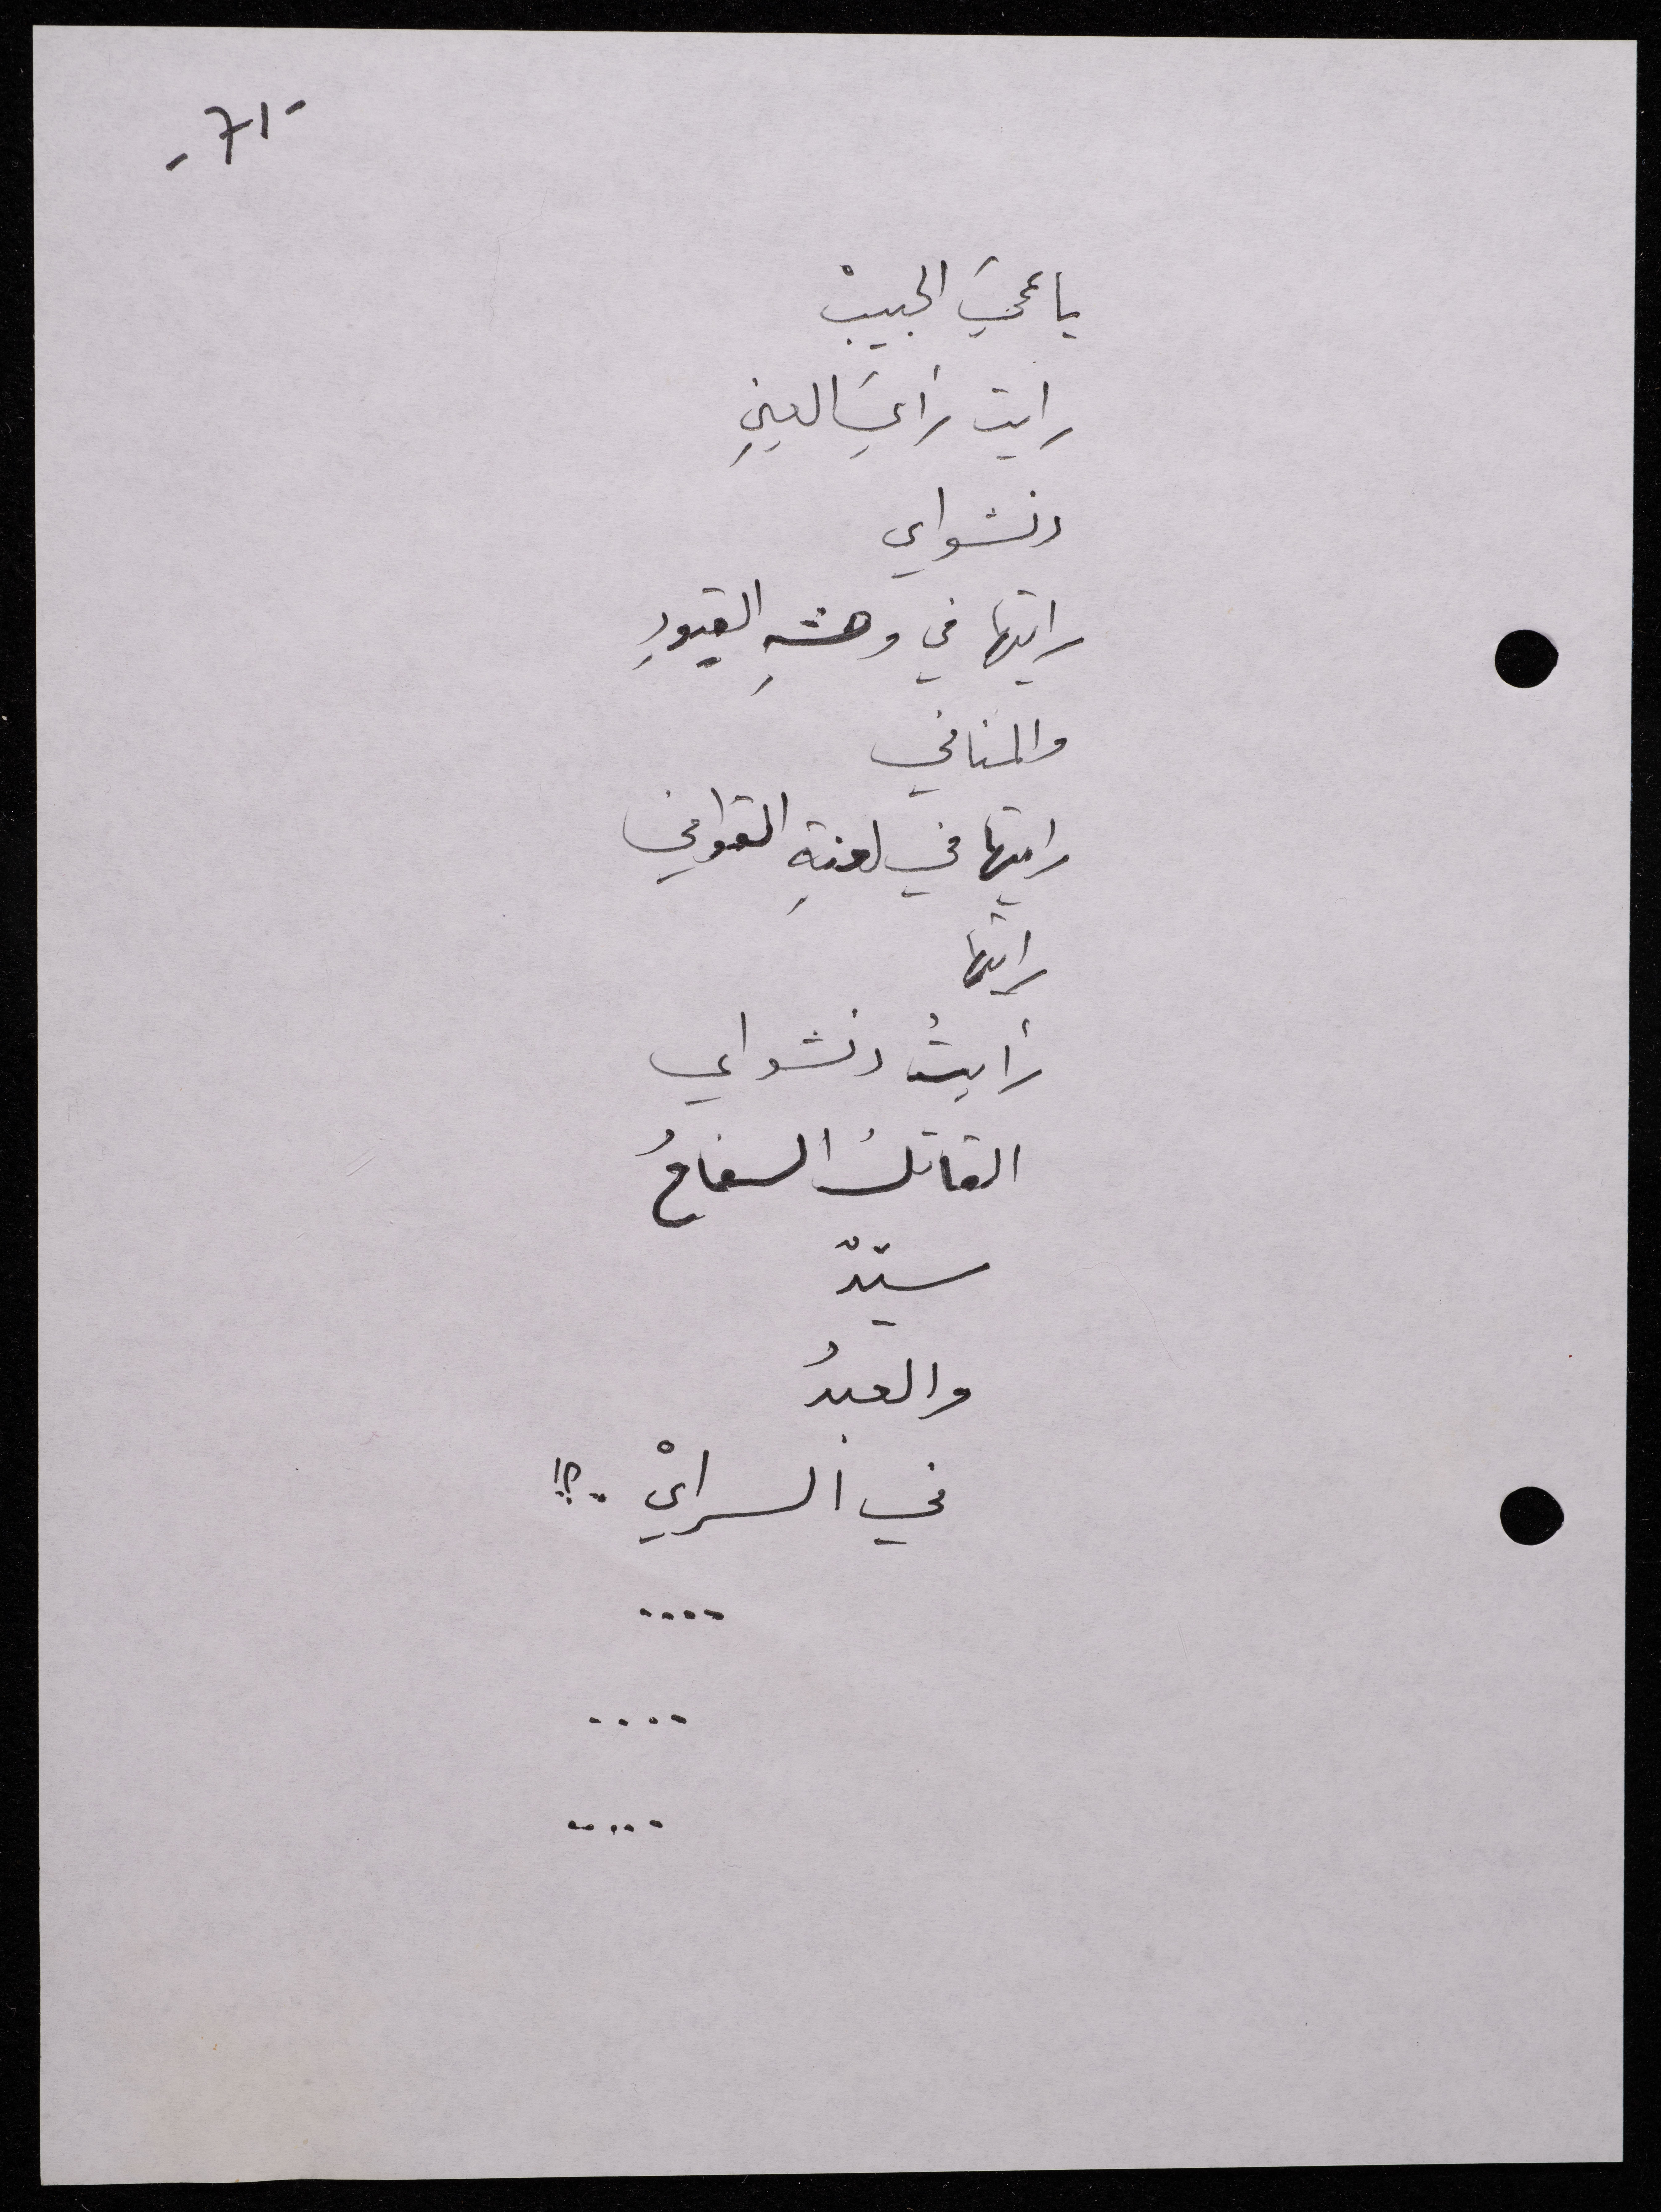 -71-
يا عمّيَ الحبيبْ
رايت رأيَ العينِ
دنشواي
رايتها في وحشةِ القيودِ
والمنافي
رايتها في لعنةِ القوافي
رايتها
رأيتُ دنشواي
القاتلُ السفاحُ
سيّدٌ
والعبدُ
في السرايْ ..؟!
....
....
.....